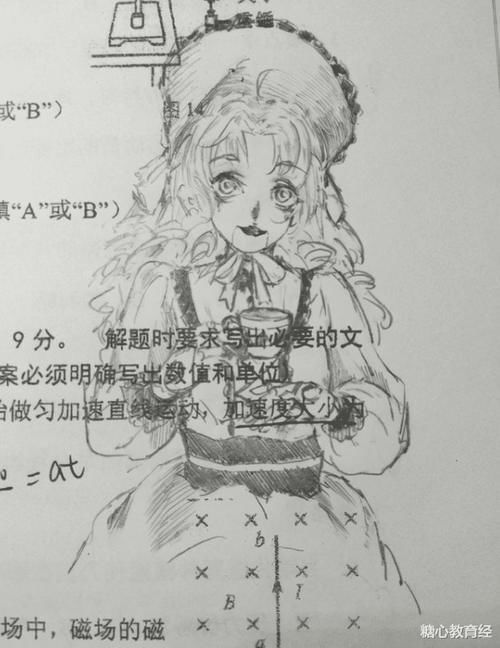 图14
或“B”）
填“A”或“B”）
9 分。 解题时要求写出必要的文
案必须明确写出数值和单位）
始做匀加速直线运动，加速度大小为
= at
× × × ×
b
× × × ×
B I
× × × ×
场中，磁场的磁
a
糖心教育经